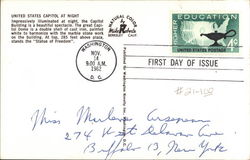 UNITED STATES CAPITOL, AT NIGHT
Impressively illuminated at night, the Capitol
Building is a beautiful spectacle. The great Capi-
tol Dome is a double shaft of cast iron, painted
white to harmonize with the marble stone work
on the building. At top, 285 feet above plaza,
stands the "Statue of Freedom".
NATURAL COLOR
WASHINGTON
NOV
14
9:00 AM
1962
D. C.
HIGHER EDUCATION
4¢
UNITED STATES POSTAGE
FIRST DAY OF ISSUE
Miss
274 West Delavan Ave
Buffalo 13, New York